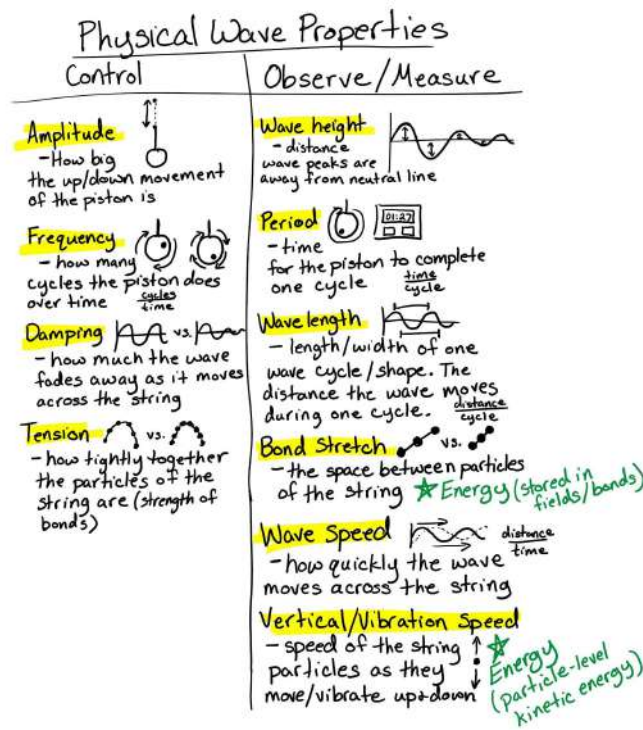 Physical Wave Properties
Control
Amplitude
- How big
the up/down movement
of the piston is
Frequency
- how many
cycles the piston does
over time cycles/time
Damping vs.
- how much the wave
fades away as it moves
across the string
Tension vs.
- how tightly together
the particles of the
string are (strength of
bonds)
Observe/Measure
Wave height
- distance
wave peaks are
away from neutral line
Period 01:27
- time
for the piston to complete
one cycle time/cycle
Wavelength
- length/width of one
wave cycle/shape. The
distance the wave moves
during one cycle. distance/cycle
Bond Stretch vs.
- the space between particles
of the string ☆ Energy (stored in
fields/bonds)
Wave Speed distance/time
- how quickly the wave
moves across the string
Vertical/Vibration Speed
- speed of the string
particles as they
move/vibrate up+down
☆
Energy
(particle-level
kinetic energy)